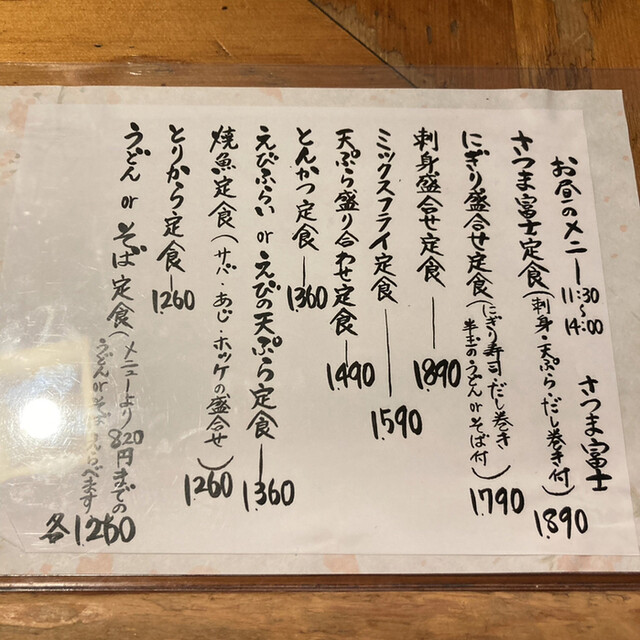 お昼のメニュー 11:30〜14:00 さつま富士
さつま富士定食(刺身・天ぷら・だし巻き付) 1.890
にぎり盛合せ定食(にぎり寿司・だし巻き
半玉のうどんorそば付) 1.790
刺身盛合せ定食 1.890
ミックスフライ定食 1.590
天ぷら盛り合わせ定食 1.490
とんかつ定食 1.360
えびふらいorえびの天ぷら定食 1.360
焼魚定食(サバ・あじ・ホッケの盛合せ) 1260
とりから定食 1.260
うどんorそば定食(メニューより820円までの
うどんorそば べます。
各1.260